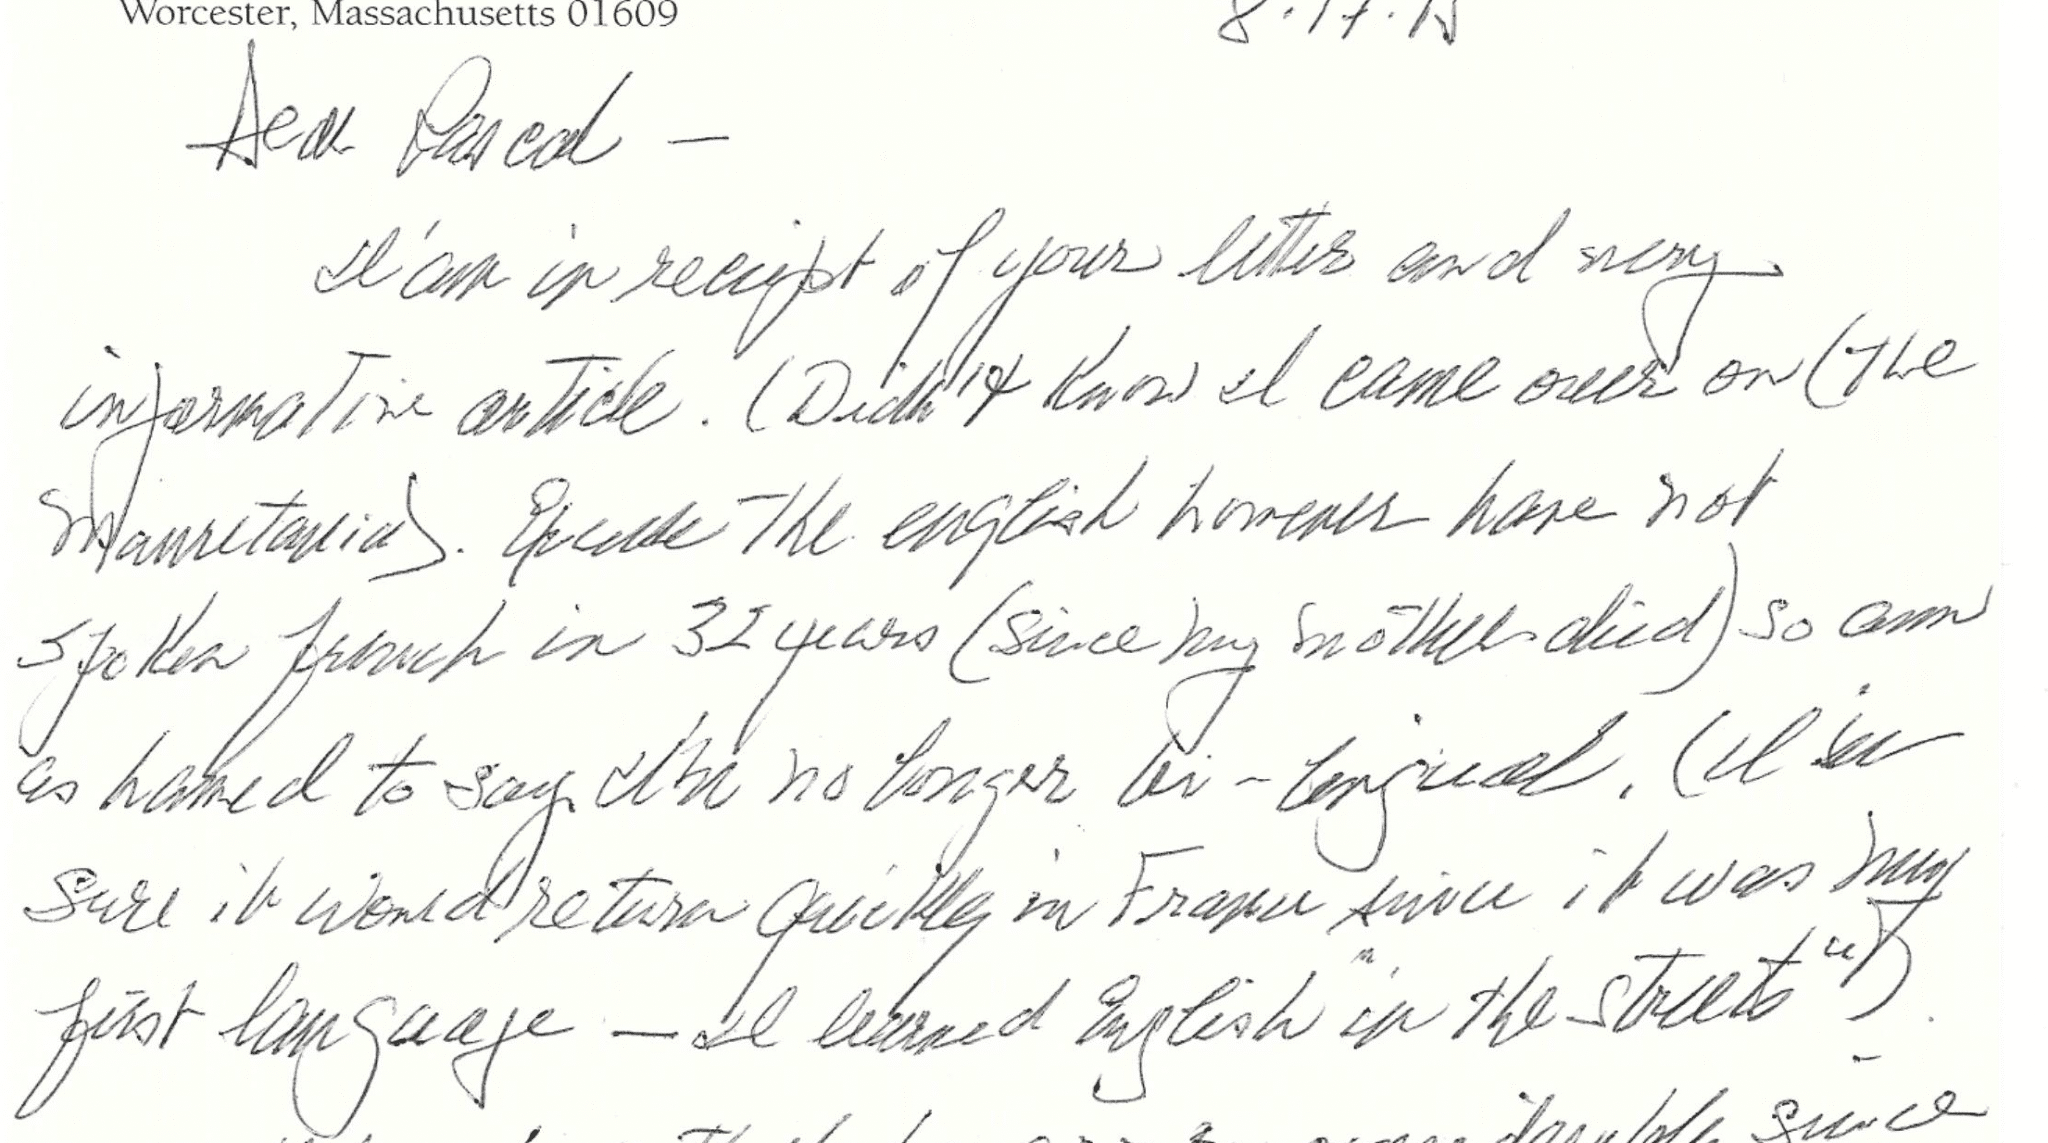 Worcester, Massachusetts 01609
8.17.15
Dear Pascal —
I'am in receipt of your letter and very
informative article. (Didn't know I came over on (the
Mauretania). Excuse the english however have not
spoken french in 32 years (since my mother died) so am
ashamed to say I'm no longer bi-lingual. (I'm
sure it would return quickly in France since it was my
first language — I learned English "in the streets").
since